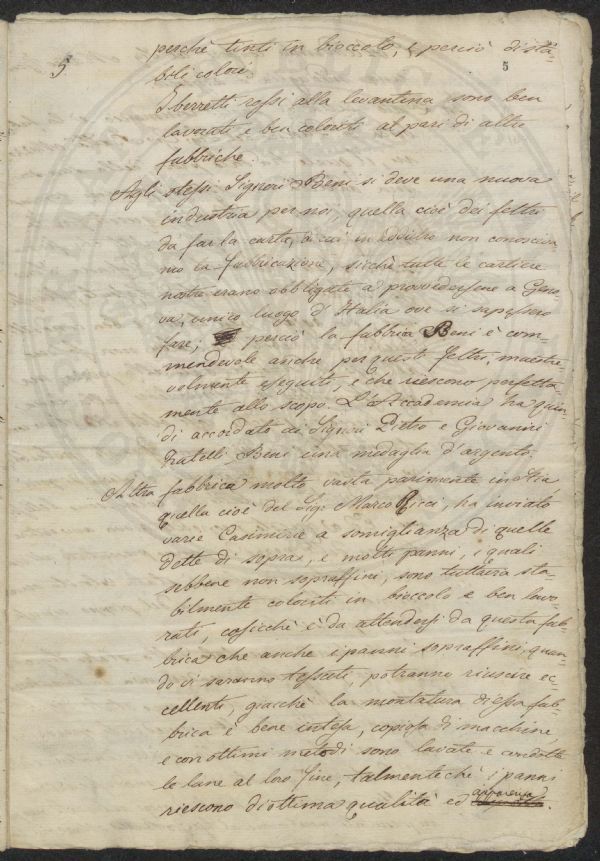 5
5
perchè tinti in bioccolo, e perciò di sta=
bili colori.
I berretti rossi alla levantina sono ben
lavorati e ben coloriti al pari di altre
fabbriche.
Agli stessi Signori Beni si deve una nuova
industria per noi, quella cioè dei feltri
da far la carta, di cui in addietro non conosceva=
mo la fabbricazione, sicchè tutte le cartiere
nostre erano obbligate a provvedersene a Geno=
va, unico luogo d'Italia ove si sapessero
fare; perciò la fabbrica Beni è com=
mendevole anche per questi feltri, maestre=
volmente eseguiti, e che riescono perfetta
mente allo scopo. L'Accademia ha quin=
di accordato ai Signori Pietro e Giovanni
Fratelli Beni una medaglia d'argento.
Altra fabbrica molto vasta parimente in Stia
quella cioè del Sig. Marco Ricci, ha inviato
varie Casimire a somiglianza di quelle
dette di sopra, e molti panni, i quali
sebbene non sopraffini, sono tuttavia sta=
bilmente coloriti in bioccolo e ben lavo=
rati, cosicchè è da attendersi da questa fab=
brica che anche i panni sopraffini, quan=
do vi saranno tessuti, potranno riuscire ec=
cellenti, giacchè la montatura di essa fab=
brica è bene intesa, copiosa di macchine
e con ottimi metodi sono lavate e condotte
le lane al loro fine, talmente chè i panni
riescono di ottima qualità ed apparenza.